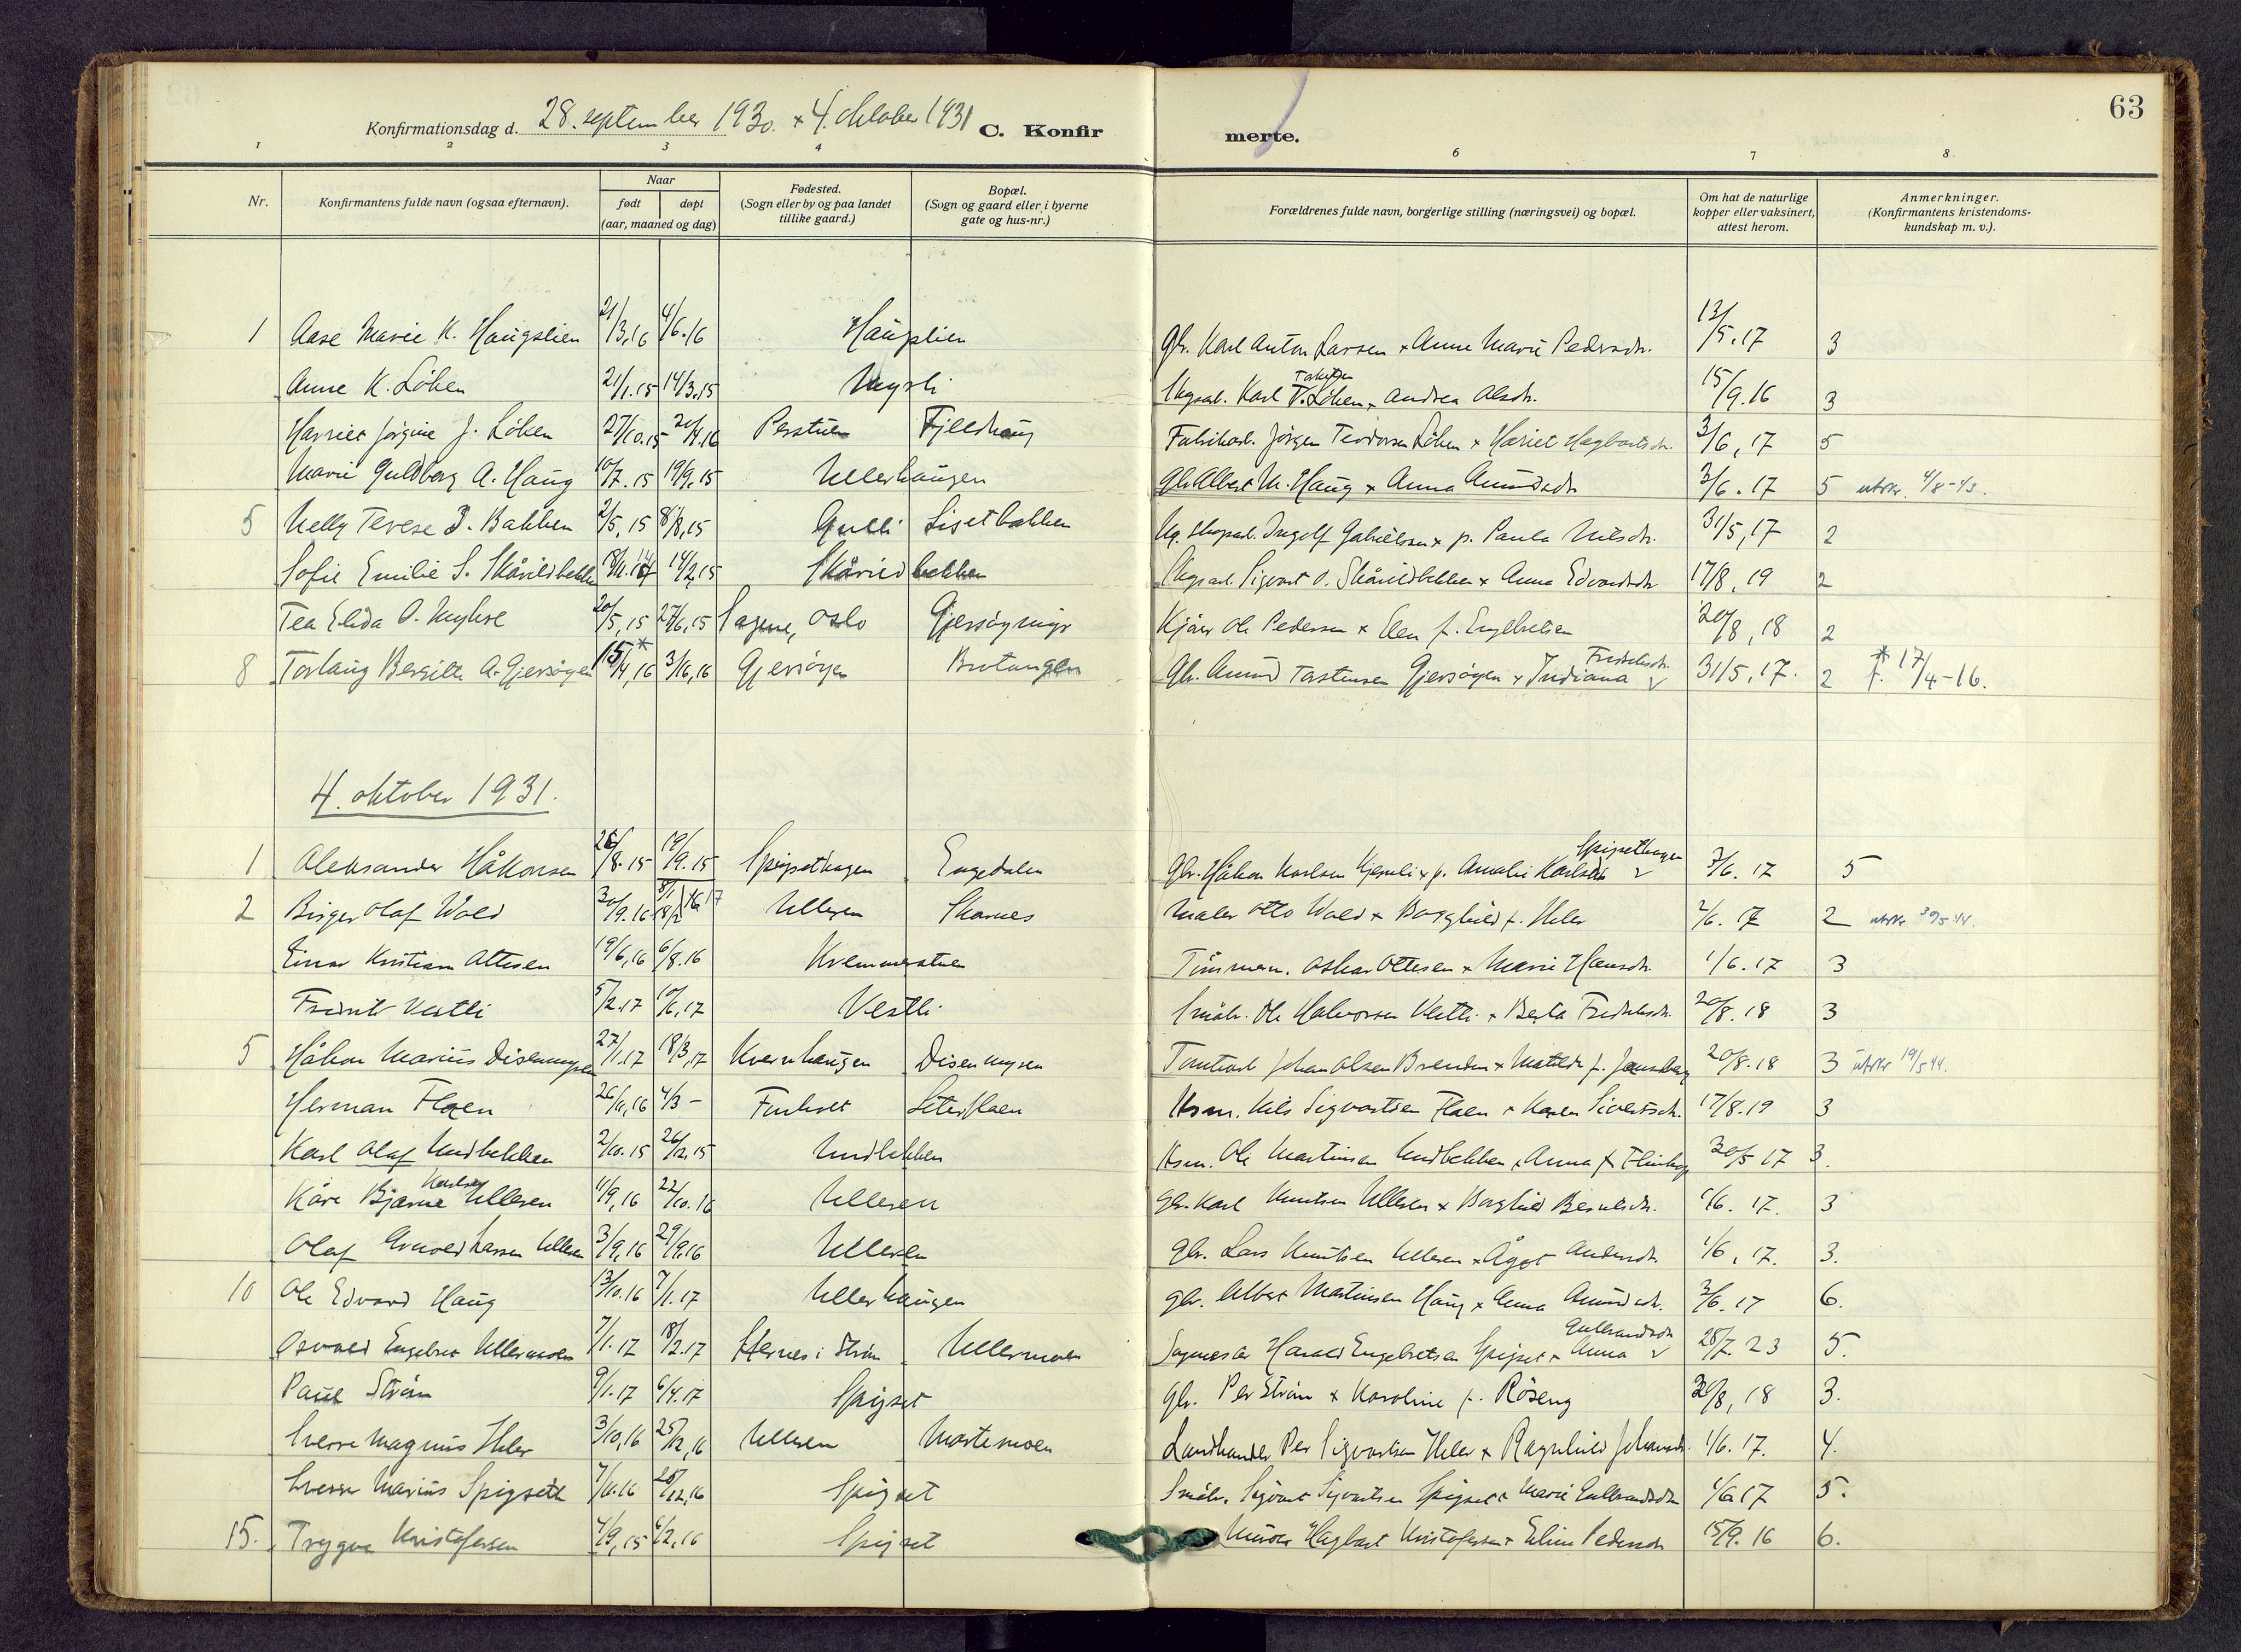 63
Konfirmationsdag d. 28. september 1930. + 4. oktober 1931 C. Konfirmerte.
1 2 3 4 6 7 8
Nr. Konfirmantens fulde navn (ogsaa efternavn). Naar født døpt (aar, maaned og dag) Fødested. (Sogn eller by og paa landet tillike gaard.) Bopæl. (Sogn og gaard eller i byerne gate og hus-nr.) Forældrenes fulde navn, borgerlige stilling (næringsvei) og bopæl. Om hat de naturlige kopper eller vaksinert, attest herom. Anmerkninger. (Konfirmantens kristendomskundskap m. v.).
1 Aase Marie K. Haugslien 21/3.16 4/6.16 Haugslien Gbr. Karl Anton Larsen + Anne Marie Pedersdr. 13/5.17 3
Anne K. Löken 21/1.15 14/3.15 Karl T. Löken + Andrea Olsdr. 15/9.16 3
Harriet Jörgine J. Löken 27/10.15 Perstuen Fjeldhaug Jörgen Teodorsen Löken + Hariet Hagbartsdr. 3/6,17 5
Marie Guldborg A. Haug 10/7.15 19/9.15 Ullerhaugen Gbr. Albert M. Haug + Anna Amundsdr. 3/6.17 5 utskr. 4/8-43.
5 Nelly Terese I. Bakken 2/5,15 8/8,15 Gulli Lisetbakken Ingolf Gabrielsen + f. Paula Nilsdr. 31/5,17 2
Sofie Emilie S. Skårildbekken 14/2,15 Skårildbekken Sigvart O. Skårildbekken + Anna Edvardsdr. 17/8,19 2
Tea Elida O. Myhre 20/5,15 27/6,15 Sagene, Oslo Kjörer Ole Pedersen + Elen f. Engebretsen 20/8,18 2
8 Torlaug Bergitte A. Gjersöyen 15/4,16 * 3/6,16 Gjersöyen Brotangen Gbr. Amund Torstensen Gjersöyen + Indiana Fredriksdr. 31/5,17. 2 * f. 17/4-16.
4. oktober 1931.
1 Aleksander Håkonsen 26/8.15 19/9.15 Spigsethagen Engedalen Gbr. Håkon Karlsen + f. Amalie Karlsdr. Spigsethagen 3/6.17 5
2 Birger Olaf Wold 30/9.16 Ullern Skarnes Maler Otto Wold + Borghild f. Uller 1/6.17 2 utskr 30/5 44.
Einar Kristian Ottesen 19/6,16 6/8.16 Kremmerstuen Tömmerm. Oskar Ottesen + Marie Hansdr. 1/6.17 3
Fredrik Vestli 5/2.17 10/6,17 Vestli Småbr. Ole Halvorsen Vestli + Berta Fredriksdr. 20/8.18 3
5 Håkon Marius Disenmyren 27/1.17 18/3,17 Kvernhaugen Disenmyren Johan Olsen Brenden + Matilde f. Jansberg 20/8.18 3 utskr 19/5 44.
Herman Floen 26/11,16 4/3 - Furuset Seterfloen Nils Sigvartsen Floen + Karen Sivertsdr. 17/8.19 3
Karl Olaf Undbekken 2/10.15 26/12.15 Undbekken Ole Martinsen Undbekken + Anna f. 30/5 17 3.
Kåre Bjarne Karlsen Ulleren 11/9,16 22/10.16 Ulleren Gbr. Karl Knutsen Ulleren + Borghild Berntsdr. 1/6.17. 3
Olaf Arnold Larsen Ulleren 3/9,16 29/9.16 Ulleren Gbr. Lars Knutsen Ulleren + Ågot Andersdr. 1/6,17. 3.
10 Ole Edvard Haug 13/10.16 7/1.17 Ullerhaugen Gbr. Albert Martinsen Haug + Anna Amundsdr. 3/6.17 6.
Osvald Engebret Ullermoen 7/1.17 18/2.17 Ullermoen Harald Engebretsen Spigset + Anna Gulbrandsdr. 28/7.23 5.
Paul Ström 9/1.17 6/4.17 Spigset Gbr. Per Ström + Karoline f. Röseng 20/8,18 3.
Sverre Magnus Uller 3/10,16 25/12,16 Ulleren Mortemoen Landhandler Per Sigvartsen Uller + Ragnhild Johansdr. 1/6.17. 4.
Sverre Marius Spigseth 7/11.16 26/12,16 Spigset Småbr. Sigvart Sigvartsen Spigset + Marie Gulbrandsdr 1/6.17 5.
15. Trygve Kristofersen 4/9,15 6/2.16 Spigset Murer Hagbart Kristofersen + Eline Pedersdr. 15/9.16 6.